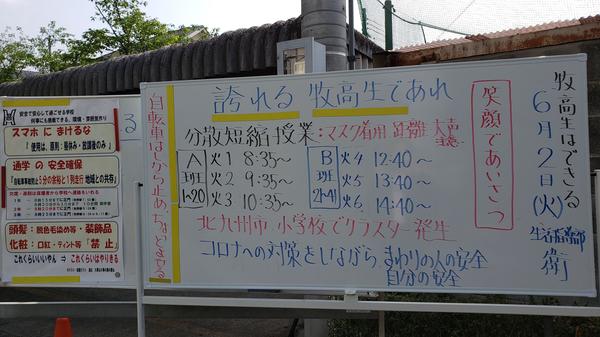 安全で安心して過ごせる学校
何事にも感動できる・環境・雰囲気作り
スマホ に まけるな
「使用は、原則：昼休み・放課後のみ」
通学 の 安全確保
「自転車事故防止5分の余裕と1列走行 地域との共存」
頭髪：脱色毛染め等・装飾品
化粧：口紅・ティント等「禁止」
これくらいいいやん ⇒ これくらいはやりきる
る
自転車はしから止めちょとなるる
誇れる 牧高生であれ
分散短縮授業：マスク着用 距離 大声
A班
1~20
火1 8:35~
火2 9:35~
火3 10:35~
B班
21~41
火4 12:40~
火5 13:40~
火6 14:40~
北九州市 小学校でクラスター発生
コロナへの対策をしながら、まわりの人の安全
自分の安全
笑顔であいさつ
牧高生はできる
6月2日(火)
生活指導部
衛